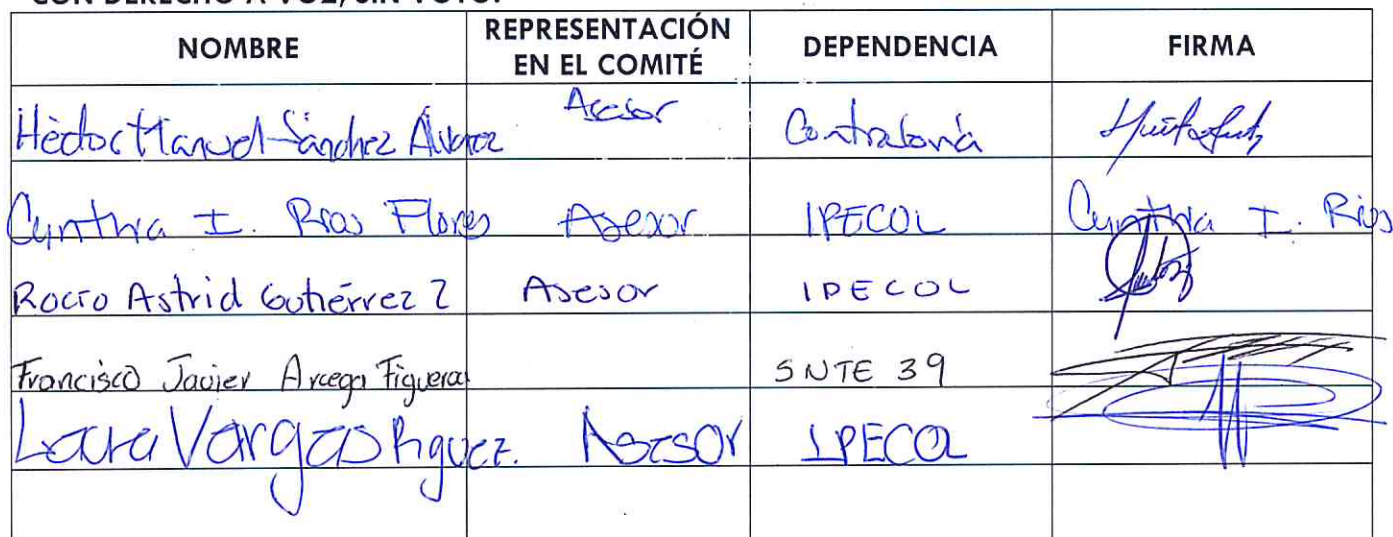 CON DERECHO A VOZ, SIN VOTO:
NOMBRE REPRESENTACIÓN EN EL COMITÉ DEPENDENCIA FIRMA
Héctor Manuel Sánchez Álvarez Asesor Contraloría
Cynthia I. Rios Flores Asesor IPECOL Cynthia I. Rios
Rocío Astrid Gutiérrez Z Asesor IPECOL
Francisco Javier Arcega Figueroa SNTE 39
Laura Vargas Rguez. Asesor IPECOL